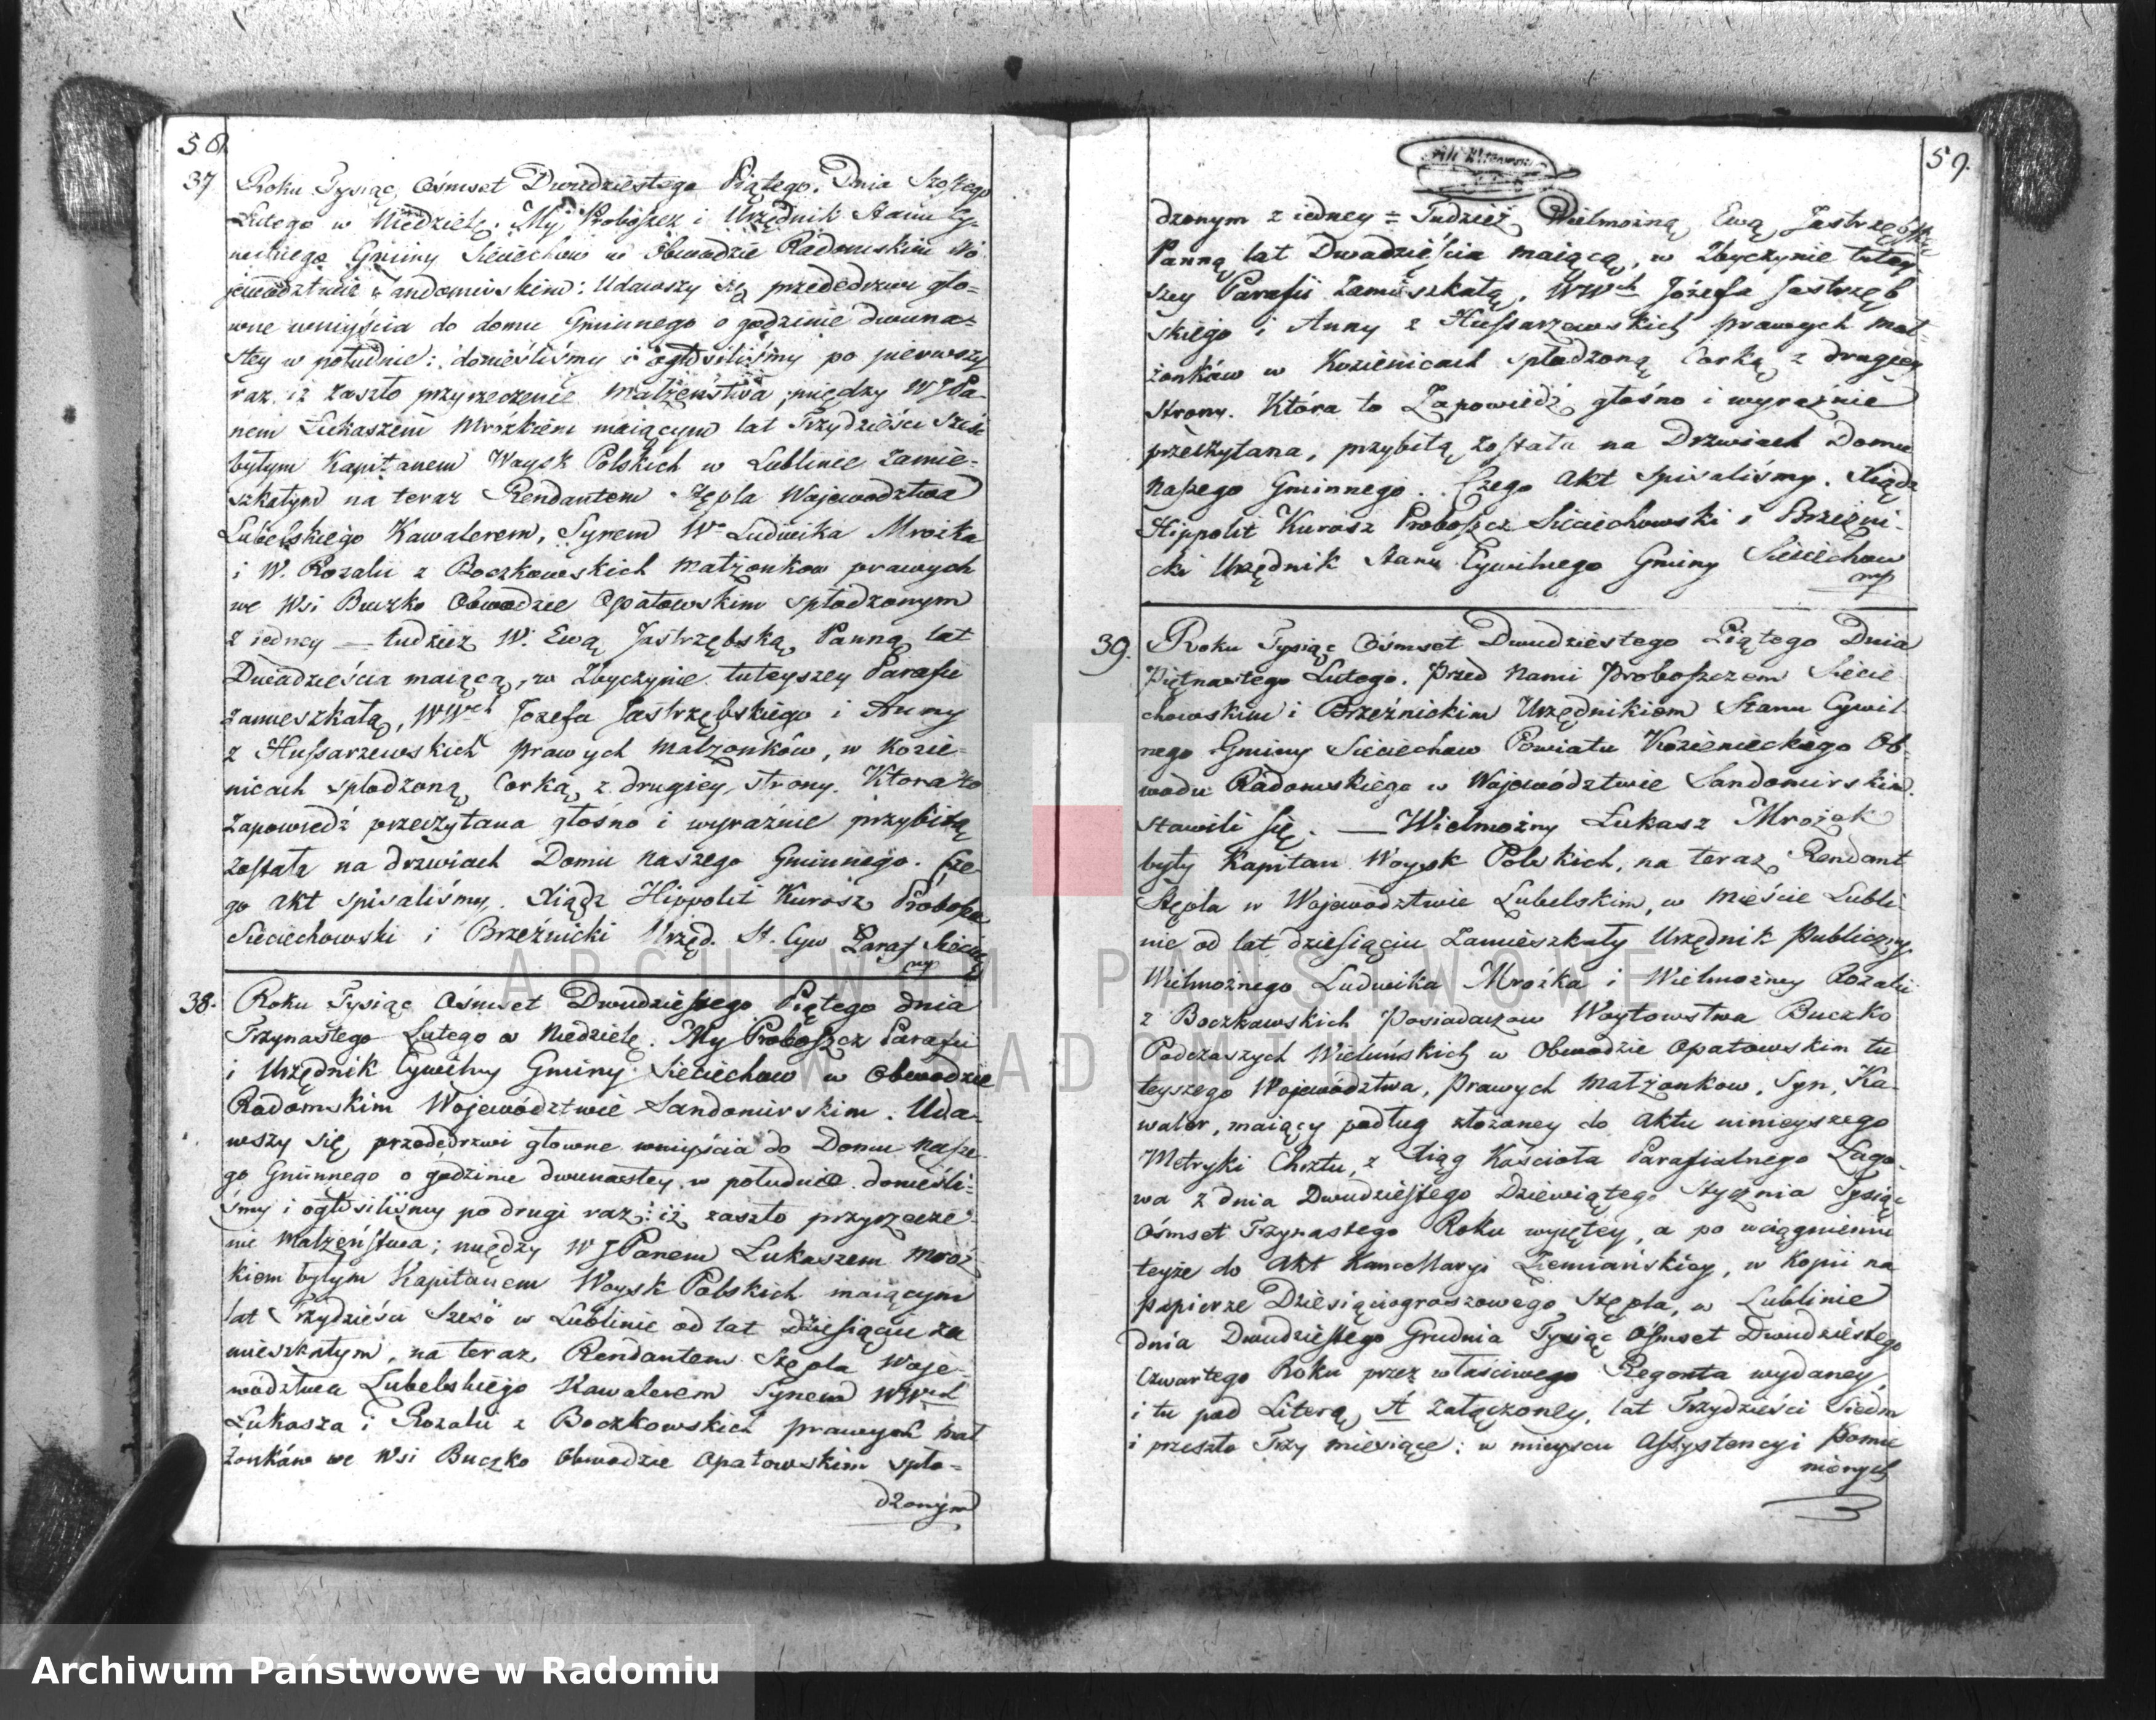 58.
37. Roku Tysiąc Ośmset Dwudziestego Piątego. Dnia Szostego
Lutego w Niedzielę. My Proboszcz i Urzędnik Stanu Cy-
wilnego Gminy Sieciechow w Obwodzie Radomskim Wo
jewodztwie Sandomirskim: Udawszy się przededrzwi glo=
wne wniyścia do domu Gminnego o godzinie dwuna=
stey w południe: donieśliśmy i ogłosiliśmy po pierwszy
raz iż zaszło przyrzeczenie Małżeństwa między WJPa-
nem Łukaszem Mrózkiem maiącym lat Trzydzieści Sześć
byłym Kapitanem Woysk Polskich w Lublinie zamie=
szkałym na teraz Rendantem Stępla Wojewodztwa
Lubelskiego Kawalerem, Synem Wo Ludwika Mrozka
i W. Rozalii z Boczkowskich Małżonkow prawych
we Wsi Buczko Obwodzie Opatowskim spłodzonym
z iedney — tudzież W. Ewą Jastrzębską Panną lat
Dwadzieścia maiącą, w Zbyczynie tuteyszey Parafii
zamieszkałą, WWch Jozefa Jastrzębskiego i Anny
z Hussarzewskich prawych małzonków, w Kozie-
nicach spłodzoną Corką z drugiey strony. Ktora to
Zapowiedź przeczytana głośno i wyraźnie przybitą
została na drzwiach Domu naszego Gminnego. Cze-
go akt spisaliśmy. Xiądz Hippolit Kurosz Probosz
Sieciechowski i Brzeźnicki Urzęd. St. Cyw Paraf Sieciech
mp
38. Roku Tysiąc Ośmset Dwudziestego Piętego dnia
Trzynastego Lutego w Niedzielę. My Proboszcz Parafii
i Urzędnik Cywilny Gminy Sieciechow w Obwodzie
Radomskim Wojewódźtwie Sandomirskim. Uda-
wszy się przodedrzwi głowne wniyścia do Domu nasze
go Gminnego o godzinie dwunastey w południe donieśli=
śmy i ogłosiliśmy po drugi raz: iż zaszło przyrzecze-
nie Małżeństwa; między WJPanem Łukaszem Mroz
kiem byłym Kapitanem Woysk Polskich maiącym
lat Trzydzieści Sześć w Lublinie od lat dziesiąciu za
mieszkałym, na teraz Rendantem Stępla Woje-
wództwa Lubelskiego Kawalerem Synem WWch
Łukasza i Rozalii z Boczkowskich prawych mał
żonków we Wsi Buczko Obwodzie Opatowskim spło=
dzonym
59.
dzonym z iedney = Tudzież Wielmożną Ewą Jastrzębską
Panną lat Dwadzieścia maiącą, w Zbyczynie tutey
szey Parafii Zamieszkałą, WWch Józefa Jastrzęb
skiego i Anny z Hussarzewskich prawych mał-
żonków w Kozienicach spłodzoną Corką z drugiey
strony. Która to Zapowiedź głośno i wyraźnie
przeczytana, przybitą została na Drzwiach Domu
naszego Gminnego. Czego akt spisaliśmy. Xiądz
Hippolit Kurosz Proboszcz Sieciechowski i Brzeźni-
cki Urzędnik Stanu Cywilnego Gminy Sieciechow
mp
39. Roku Tysiąc Ośmset Dwudziestego Piątego Dnia
Piętnastego Lutego. Przed Nami Proboszczem Siecie
chowskim i Brzeźnickim Urzędnikiem Stanu Cywil
nego Gminy Sieciechow Powiatu Kozienieckiego Ob-
wodu Radomskiego w Wojewódźtwie Sandomirskim.
Stawili się. — Wielmożny Łukasz Mrożek
były Kapitan Woysk Polskich, na teraz Rendant
Stępla w Wojewodztwie Lubelskim, w mieście Lubli-
nie od lat dziesiąciu Zamieszkały Urzędnik Publiczny.
Wielmożnego Ludwika Mrożka i Wielmożney Rozalii
z Boczkowskich Posiadaczow Woytowstwa Buczko
Podczaszych Wieluńskich w Obwodzie Opatowskim tu
teyszego Województwa, prawych małżonkow, Syn, Ka-
waler, maiący podług złożoney do Aktu ninieyszego
Metryki Chrztu, z Xiąg Kościoła Parafialnego Łago-
wa z dnia Dwudziestego Dziewiątego Stycznia Tysiąc
Ośmset Trzynastego Roku wyiętey, a po wciągnieniu
teyże do Akt Kancellaryi Ziemiańskiey, w Kopii na
papierze Dziesięciogroszowego Stępla, w Lublinie
dnia Dwudziestego Grudnia Tysiąc Ośmset Dwudziestego
Czwartego Roku przez właściwego Regenta wydaney,
i tu pod Literą A załączoney, lat Trzydzieści Siedm
i przeszło Trzy miesiące; w mieyscu Assystencyi Pomie
nionych
ARCHIWUM PAŃSTWOWE
W RADOMIU
Archiwum Państwowe w Radomiu